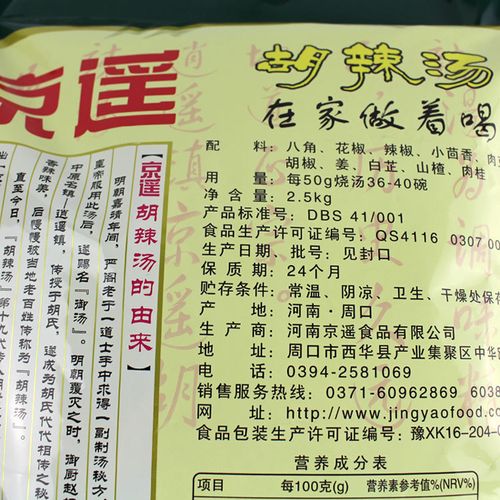 京遥
胡辣汤
在家做着喝
配 料：八角、花椒、辣椒、小茴香、肉豆
胡椒、姜、白芷、山楂、肉桂
用 量：每50g烧汤36-40碗
净 含 量：2.5kg
产品标准号：DBS 41/001
食品生产许可证编号：QS4116 0307 00
生产日期、批号：见封口
保 质 期：24个月
贮存条件：常温、阴凉、卫生、干燥处保存
产 地：河南·周口
生 产 商：河南京遥食品有限公司
地 址：周口市西华县产业集聚区中华
电 话：0394-2581069
销售服务热线：0371-60962869 6038
网 址：http://www.jingyaofood.co
食品包装生产许可证编号：豫XK16-204-0
营养成分表
项目 每100克(g) 营养素参考值%(NRV%)
【京遥胡辣汤的由来】
明朝嘉靖年间，严阁老于一道士手中求得一副制汤秘方
皇帝服用此汤后，遂赐名『御汤』。明朝覆灭之时，御厨赵
中原名镇—逍遥镇，传授于胡氏，遂成为胡氏代代相传之秘
香辣味美，后慢慢被当地老百姓传称为『胡辣汤』。
直至今日，『胡辣汤』第十九代传人胡